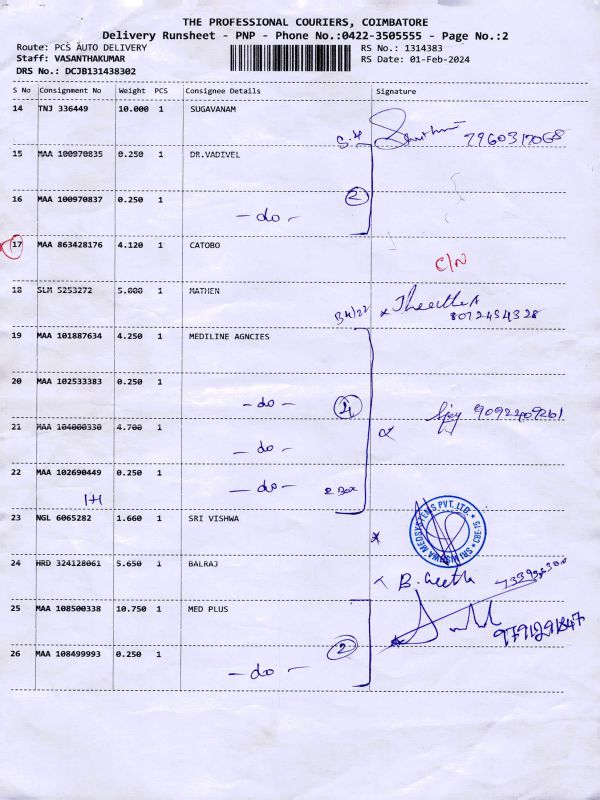 THE PROFESSIONAL COURIERS, COIMBATORE
Delivery Runsheet - PNP - Phone No.:0422-3505555 - Page No.:2
Route: PCS AUTO DELIVERY RS No.: 1314383
Staff: VASANTHAKUMAR RS Date: 01-Feb-2024
DRS No.: DCJB131438302
S No Consignment No Weight PCS Consignee Details Signature
14 TNJ 336449 10.000 1 SUGAVANAM
7960317068
15 MAA 100970835 0.250 1 DR.VADIVEL
16 MAA 100970837 0.250 1
- do - 2
17 MAA 863428176 4.120 1 CATOBO
C/N
18 SLM 5253272 5.000 1 MATHEN
8072454328
19 MAA 101887634 4.250 1 MEDILINE AGNCIES
20 MAA 102533383 0.250 1
- do - 4 9092209261
21 MAA 104000330 4.700 1
- do -
22 MAA 102690449 0.250 1
- do - 2 Box
1+1
23 NGL 6065282 1.660 1 SRI VISHWA
SRI VISHWA MEDSYSTEMS PVT. LTD. CBE-15
24 HRD 324128061 5.650 1 BALRAJ
B. Geetha
25 MAA 108500338 10.750 1 MED PLUS
9791291847
26 MAA 108499993 0.250 1 2
- do -